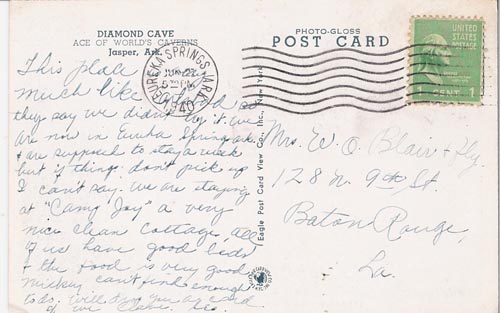 DIAMOND CAVE
ACE OF WORLD'S CAVERNS
Jasper, Ark.
PHOTO-GLOSS
POST CARD
UNITED
STATES
POSTAGE
1 CENT 1
EUREKA SPRINGS, ARK.
JUN 22
5 PM
1940
This place
much like
they say we didn't try it. We
are now in Eureka Springs Ark
& are supposed to stay a week
but if things don't pick up
I can't say. We are staying
at "Camp Joy" a very
nice clean cottage, all
of us have good beds
& the food is very good
Mickey can't find enough
to do. Will drop you a card
if we leave.
Eagle Post Card View Co., Inc., New York
Mrs. W. O. Blair & fly.
128 N. 9th St.
Baton Rouge,
La.